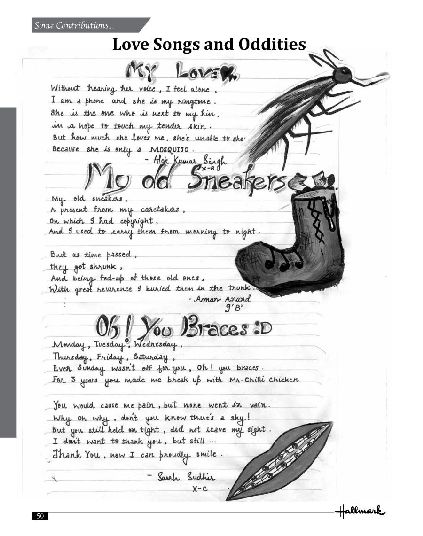 Some Contributions...
Love Songs and Oddities
My Love
Without hearing her voice, I feel alone.
I am a phone and she is my ringtone.
She is the one who is next to my
in a hope to touch my tender skin.
But how much she loves me, she's unable to show
Because she is only a MOSQUITO.
- Kumar Singh
X-A
My old Sneakers
My old sneakers,
A present from my caretakers,
On which I had copyright.
And I used to carry them from morning to night.
But as time passed,
they got shrunk,
And being fed-up of those old ones,
With great reverence I buried them in the trunk.
- Aman
9'B'
Oh! You Braces :D
Monday, Tuesday, Wednesday,
Thursday, Friday, Saturday,
Even Sunday wasn't off for you, Oh! you braces
For 3 years you made me break up with Mr. Chilli Chicken
You would cause me pain, but none went in vain.
Why oh why, don't you know there's a sky!
But you still held on tight, did not leave my sight.
I don't want to thank you, but still...
Thank You, now I can proudly smile.
- Sarah Sudhir
X-C
50
Hallmark